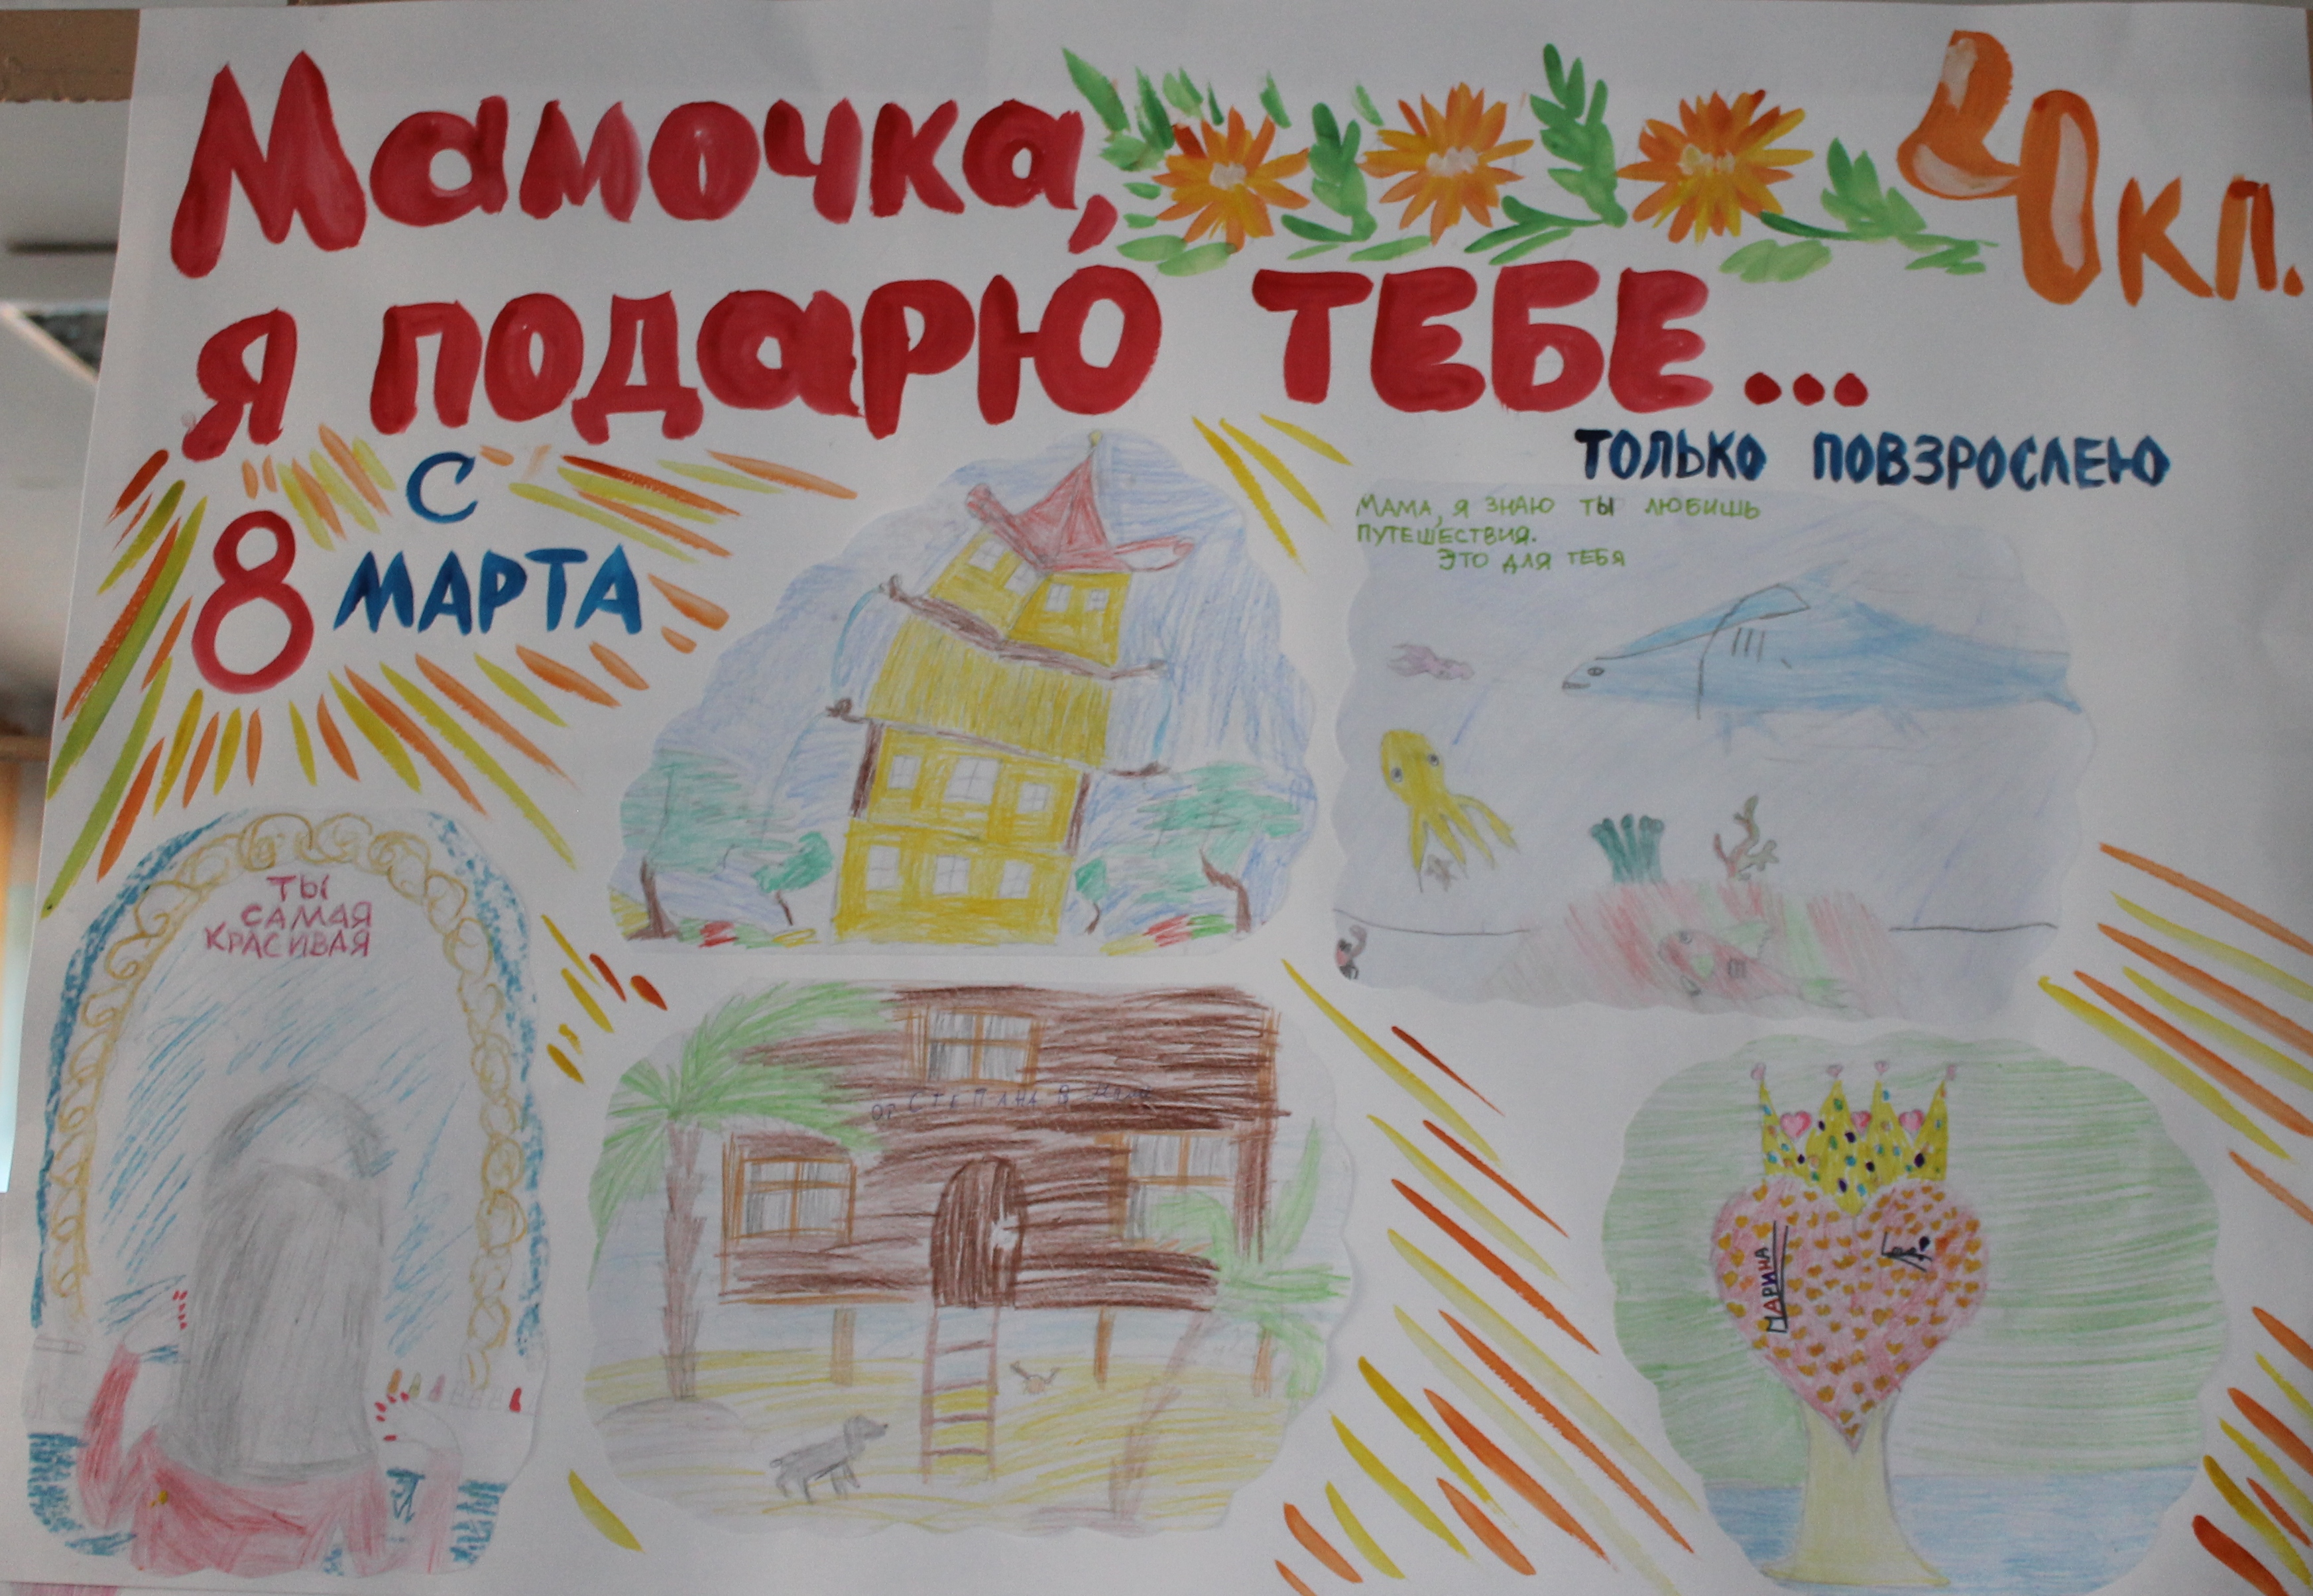 Мамочка,
20 кл.
я подарю ТЕБЕ...
только повзрослею
С
8 МАРТА
Мама, я знаю ты любишь
путешествия.
Это для тебя
ТЫ
САМАЯ
КРАСИВАЯ
СТЕПАНА
МАРИНА